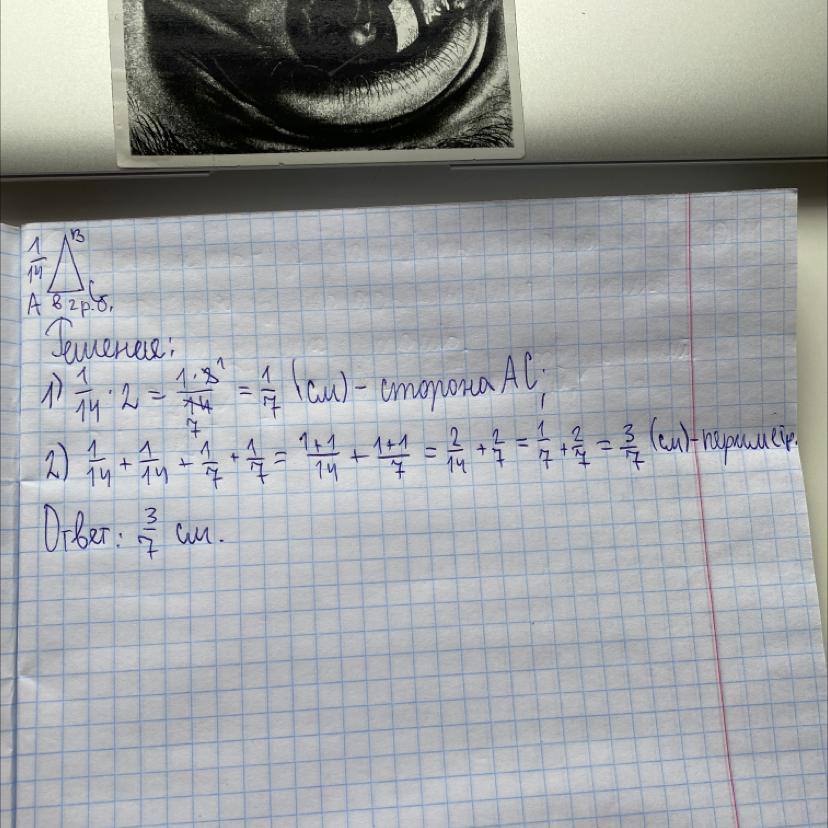 В
1/14
С
А в 2 р. б.
Решения:
1) 1/14 · 2 = 1·2 1/14 7 = 1/7 (см) - сторона АС;
2) 1/14 + 1/14 + 1/7 + 1/7 = 1+1/14 + 1+1/7 = 2/14 + 2/7 = 1/7 + 2/7 = 3/7 (см) - периметр.
Ответ: 3/7 см.